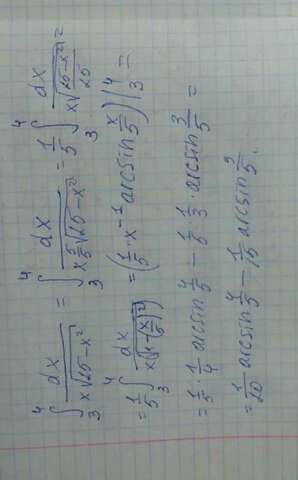 ∫₃⁴ dx/(x√(25-x²)) = ∫₃⁴ dx/(x 5/5 √(25-x²)) = 1/5 ∫₃⁴ dx/(x√((25-x²)/25)) =
= 1/5 ∫₃⁴ dx/(x√(1-(x/5)²)) = (1/5 · x⁻¹ arcsin x/5)|₃⁴ =
= 1/5 · 1/4 arcsin 4/5 - 1/5 · 1/3 · arcsin 3/5 =
= 1/20 arcsin 4/5 - 1/15 arcsin 3/5.